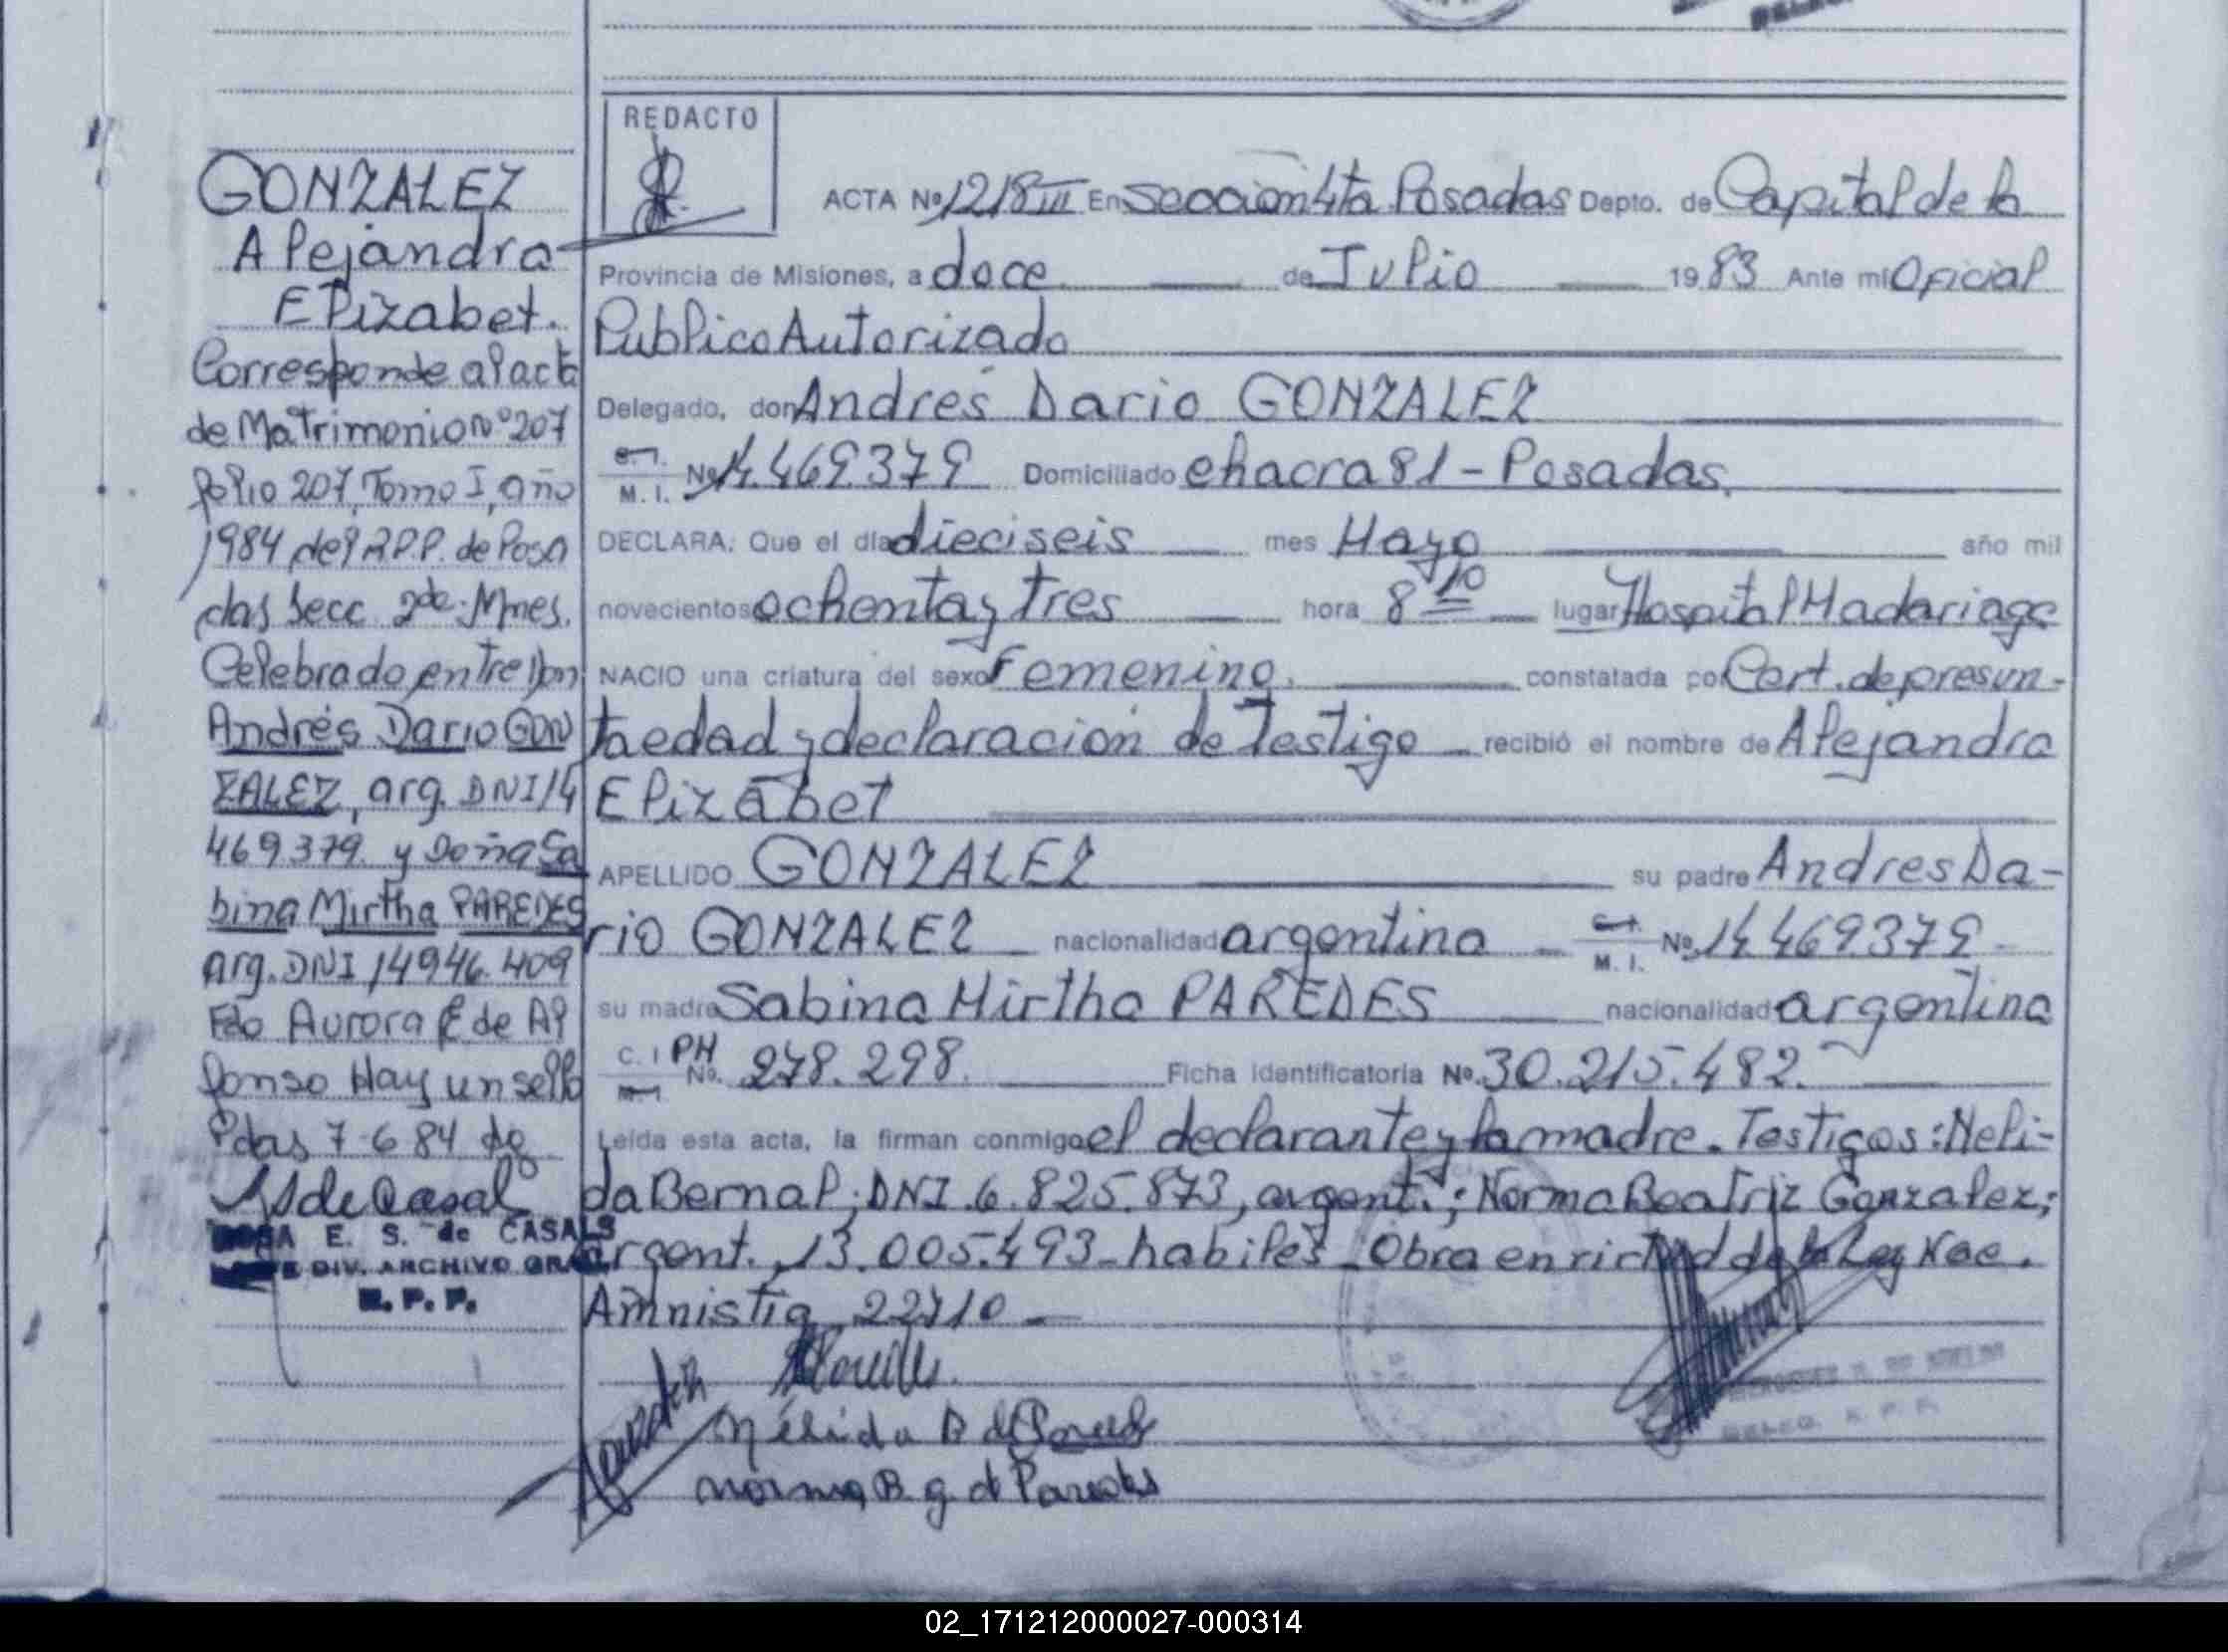 GONZALEZ
Alejandra
Elizabet.
Corresponde al acta
de Matrimonio Nº 207
folio 207, Tomo I, año
1984 del R.P.P. de Posa
das Secc. 2da. Mnes.
Celebrado entre Don
Andrés Dario GON
ZALEZ, arg. DNI 14
469379 y Doña Sa
bina Mirtha PAREDES
arg. DNI 14946.409
Fdo Aurora E de Al
fonso Hay un sello
Pdas 7-6 84
de Casals
ROSA E. S. de CASALS
DIV. ARCHIVO GRAL
R. P. P.
REDACTO
ACTA Nº 1218 III En Seccion 4ta Posadas Depto. de Capital de la
Provincia de Misiones, a doce de Julio 1983 Ante mi Oficial
Publico Autorizado
Delegado, don Andrés Dario GONZALEZ
M. I. Nº 14.469.379 Domiciliado chacra 81 - Posadas.
DECLARA: Que el día dieciseis mes Mayo año mil
novecientos ochenta y tres hora 8 10 lugar Hospital Madariaga
NACIO una criatura del sexo Femenino. constatada por Cert. de presun-
ta edad y declaración de Testigo recibió el nombre de Alejandra
Elizabet
APELLIDO GONZALEZ su padre Andres Da-
rio GONZALEZ nacionalidad argentina M. I. Nº 14.469.379
su madre Sabina Mirtha PAREDES nacionalidad argentina
C. I PH No. 278.298. Ficha identificatoria Nº 30.215.482.
Leída esta acta, la firman conmigo el declarante y la madre. Testigos: Neli-
da Bernal; DNI. 6.825.873, argent.; Norma Beatriz Gonzalez;
argent. 13.005.493 - habiles. Obra en virtud de la Ley Nac.
Amnistia 22710
Paredes
Gonzalez
Nélida B de Paredes
Norma B. g. d Paredes
DELEG. R. P. P.
02_171212000027-000314